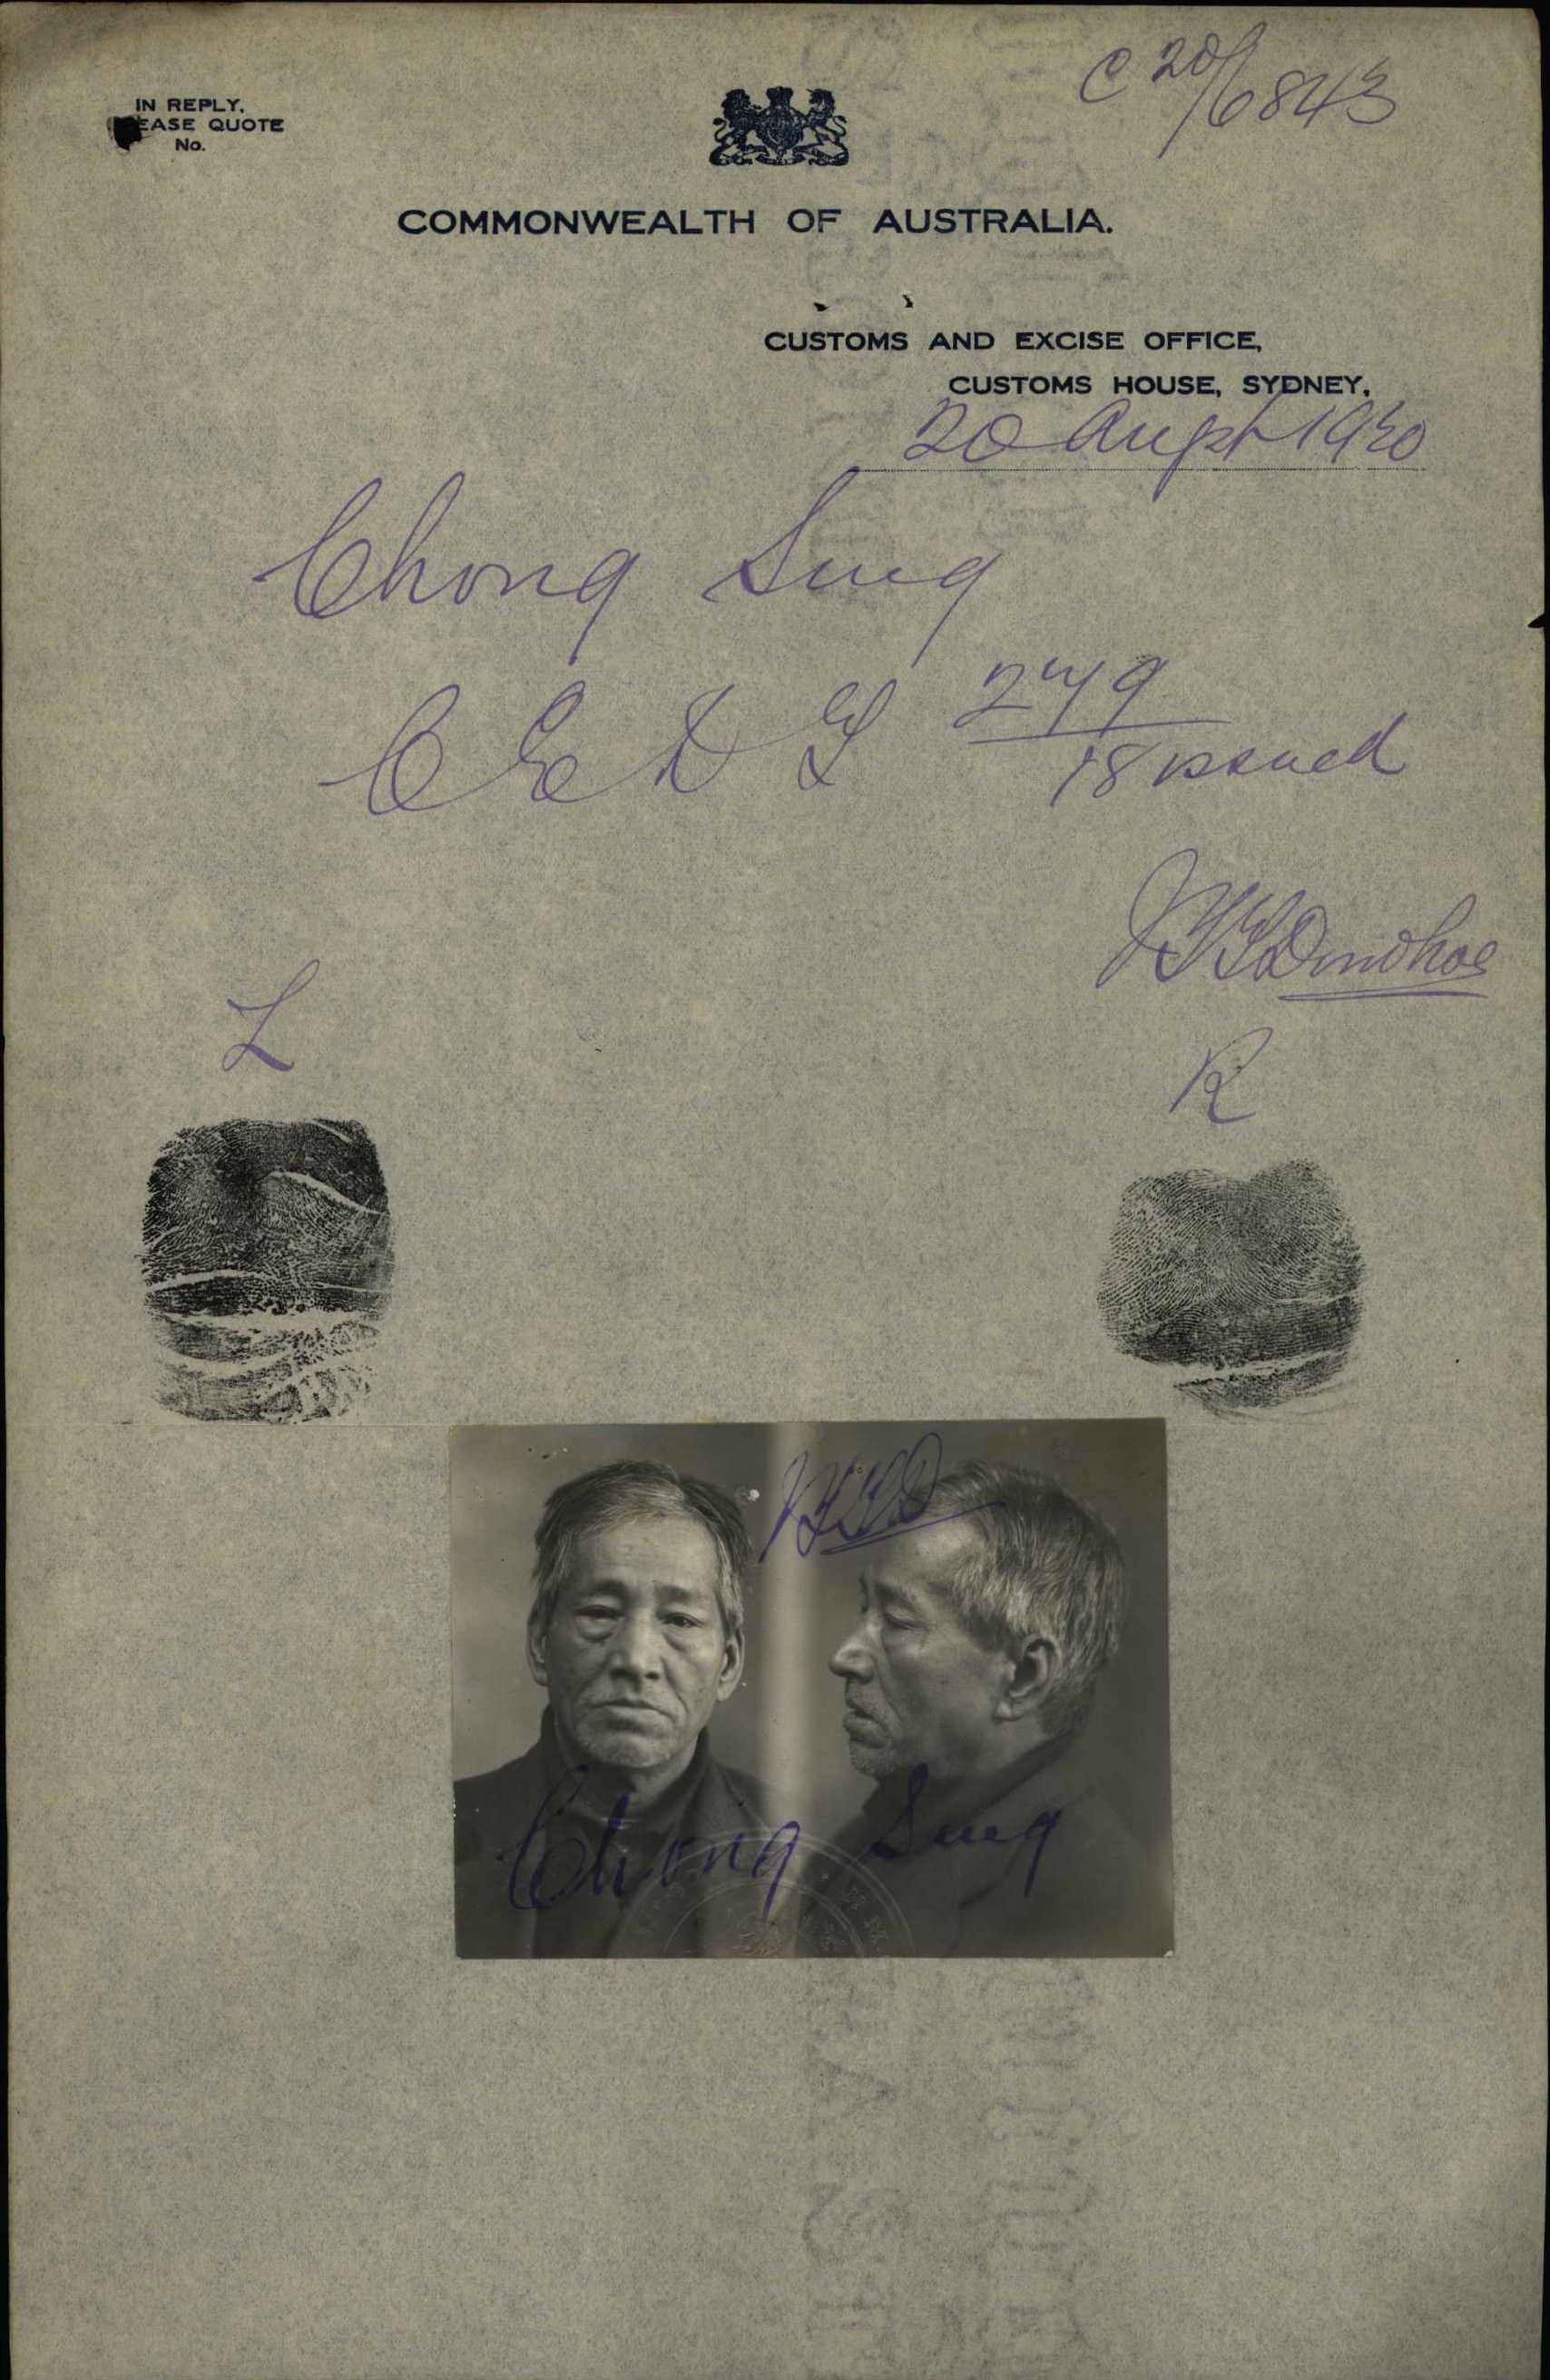 C 20/6843
IN REPLY,
EASE QUOTE
No.
COMMONWEALTH OF AUSTRALIA.
CUSTOMS AND EXCISE OFFICE,
CUSTOMS HOUSE, SYDNEY,
20 Augst 1920
Chong Sing
C E D T 279/18 issued
Donohoe
L
R
Chong Sing